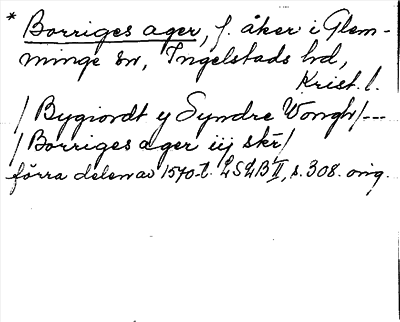 * Borriges ager, f. åker i Glem-
minge sn, Ingelstads hd,
Krist. l.
/ Bygiordt y Syndre Vongh/---
/ Borriges ager iij skr/
förra delen av 1570-t. LSLB II, s. 308. orig.